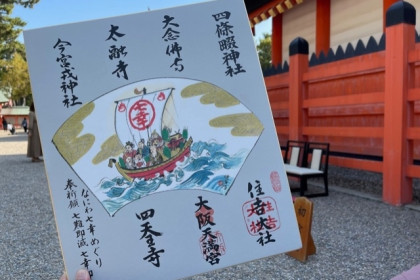 四條畷神社
大念佛寺
太融寺
今宮戎神社
七幸
住吉大社
住吉大社
大阪天満宮
四天王寺
なにわ七幸めぐり
奉祈願 七難即滅 七幸即